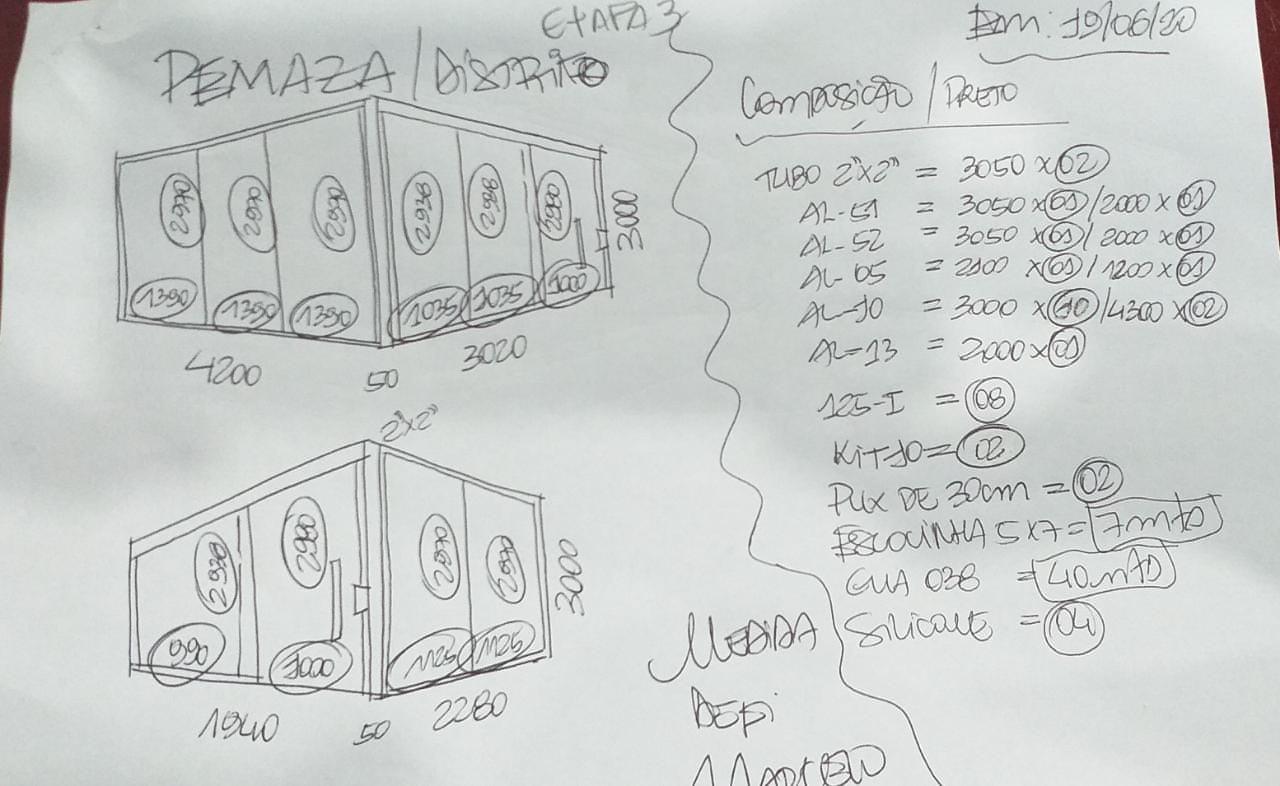 ETAPA 3
DEMAZA/DISTRITO
2970
2970
2970
2938
2982
2980
1390
1390
1390
1035
1035
1000
3000
4200
50
3020
2"x2"
2930
2980
2970
2970
990
1000
1125
1125
3000
1940
50
2280
MEDIDA
Em: 19/06/20
COMPOSIÇÃO/PRETO
TUBO 2"x2" = 3050 x 02
AL-51 = 3050 x 01/2000 x 01
AL-52 = 3050 x 01/2000 x 01
AL-05 = 2100 x 01/1200 x 01
AL-10 = 3000 x 10/4300 x 02
AL-13 = 2000 x 01
125-I = 08
KIT-10 = 02
PUX DE 30cm = 02
ESCOVINHA 5x7 = 7mts
GUA 038 = 40mts
SILICONE = 04